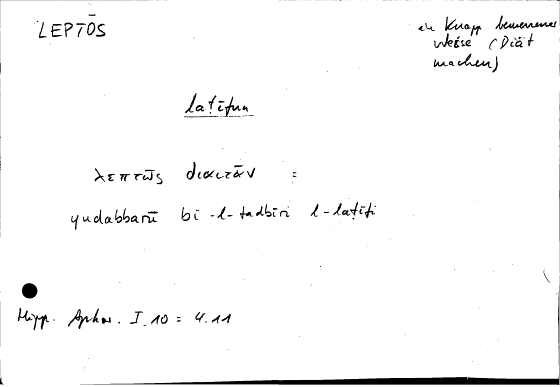 LEPTŌS
in knapp bemessener
Weise (Diät
machen)
laṭīfun
λεπτῶς διαιτᾶν =
yudabbarū bi-l-tadbīri l-laṭīfi
Hipp. Aphor. I.10 = 4.11